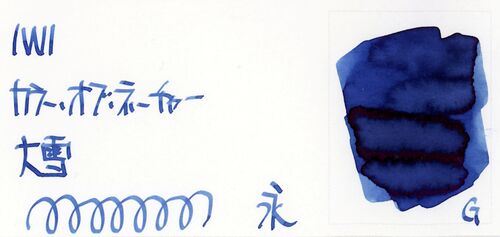 IWI
カラー・オブ・ネーチャー
大雪
永
G